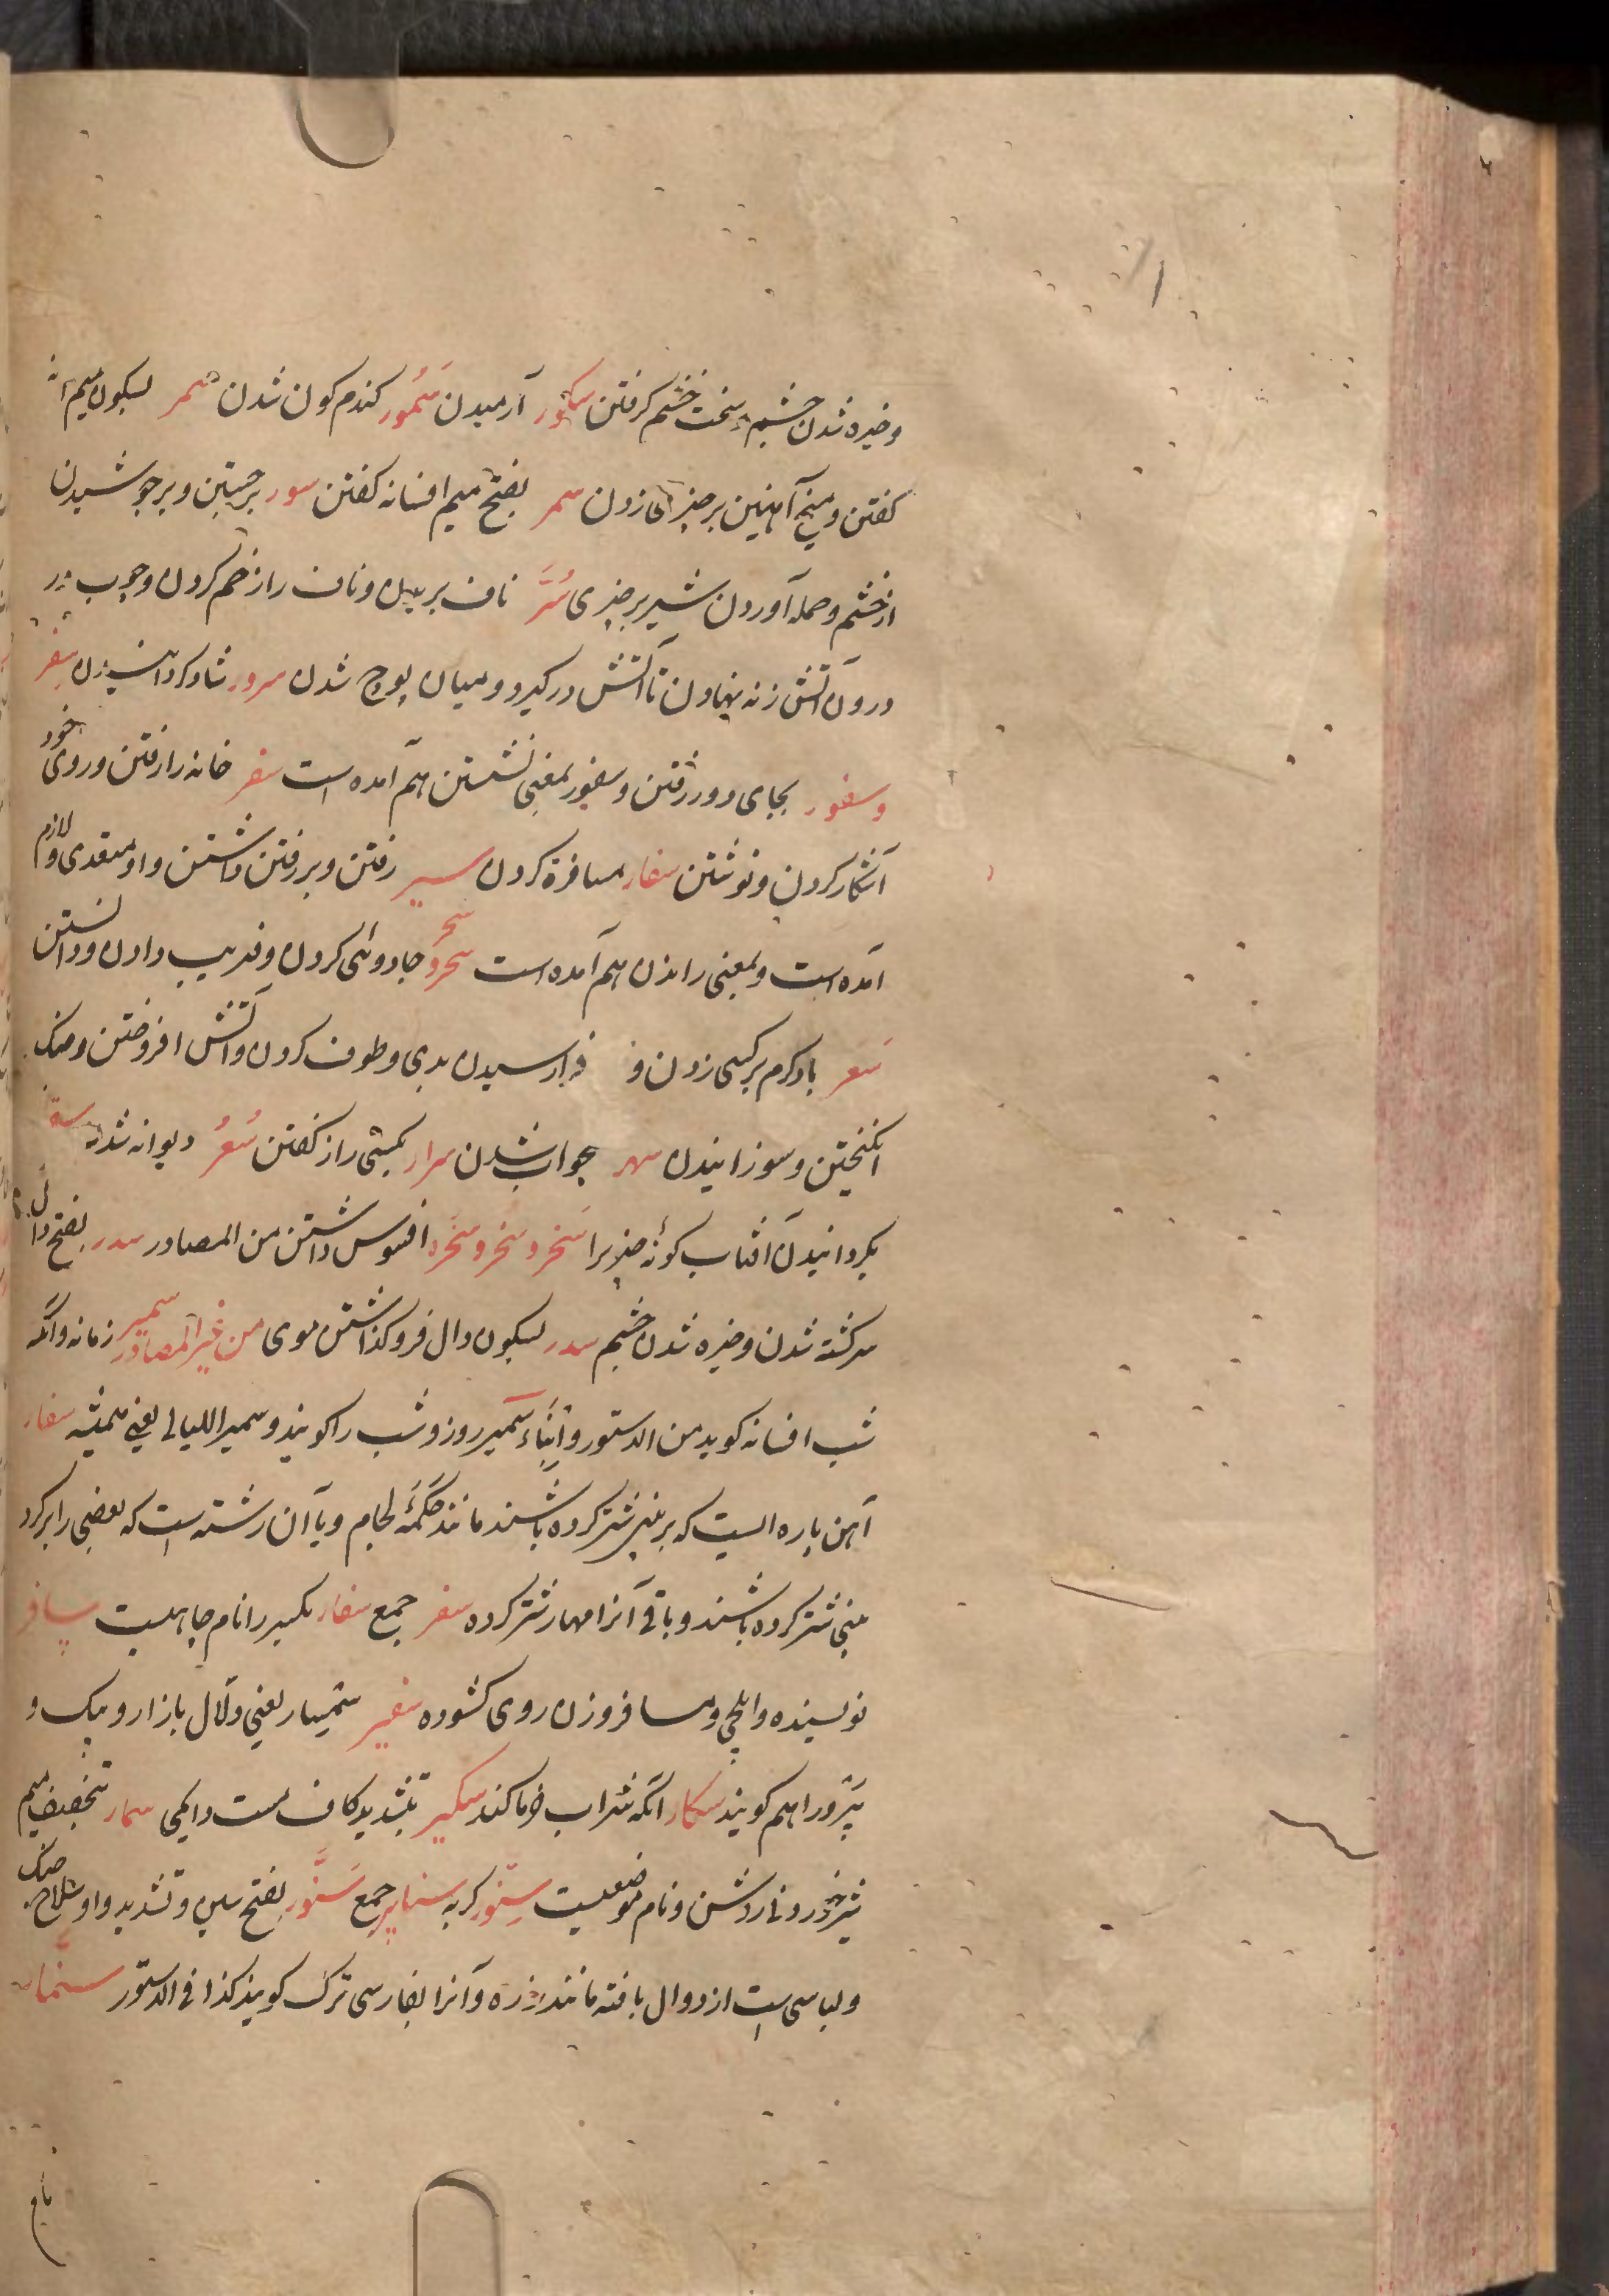 و خیره شدن چشم و سخت خشم کرفتن سکور آرمیدن سُمُور کندم کون شدن سمر بسکون میم
کفتن و میخ آهنین بر چیزی زدن سمر بفتح میم افسانه کفتن سور برجستن و برجوشیدن
از خشم و حمله آوردن شیر بر چیزی سُرَّ ناف بریدن و ناف را زخم کردن و چوب در
درون آتش زنه نهادن تا آتش درکیرد و میان پوچ شدن سرور شاد کردانیدن سفر
و سفور بجای دور رفتن و سفور بمعنی نشستن هم آمده است سفر خانه را رفتن و روی خود
آشکار کردن و نوشتن سفار مسافرة کردن سیر رفتن و بر رفتن داشتن و او متعدی و لازم
آمده است و بمعنی راندن هم آمده است سحر و سحر جادوئی کردن و فریب دادن و دانستن
سَعر باد کرم بر کسی زدن و فرا رسیدن بدی و طوف کردن و آتش افروختن و جنک
انکیختن و سوزانیدن سهر بیخواب شدن سرار بکسی راز کفتن سُعُر دیوانه شدن
بکردانیدن آفتاب کونهٔ چیزیرا سَخر و سخر و سخره افسوس داشتن من المصادر سدر بفتح دال
سرکشته شدن و خیره شدن چشم سدر بسکون دال فروکذاشتن موی من غیر المصادر سمیر زمانه و آنکه
شب افسانه کوید من الدستور و ابناء سَمیر روز و شب را کویند و سمیر اللیالی یعنی همیشه سفار
آهن پاره ایست که بر بینی شتر کرده باشند مانند حکمهٔ لجام و یا آن رشته است که بعضی را بر کرد
بینی شتر کرده باشند و باقی آنرا مهار شتر کرده سفر جمع سفار بکسر را نام چاهیست سافر
نویسنده و ایلچی و مسافر و زن روی کشوده سفیر سمسار یعنی دلّال بازار و پیک و
را هم کویند سکار آنکه شراب خرما کند سکیر بتشدید کاف مست دایمی سمار بتخفیف میم
شیر و نام موضعیست سنّور کربه سنانیر جمع سَنَّور بفتح سین و تشدید واو سلاح جنک
و لباسی است از دوال بافته مانند زره و آنرا بفارسی ترک کویند کذا فی الدستور سنمار